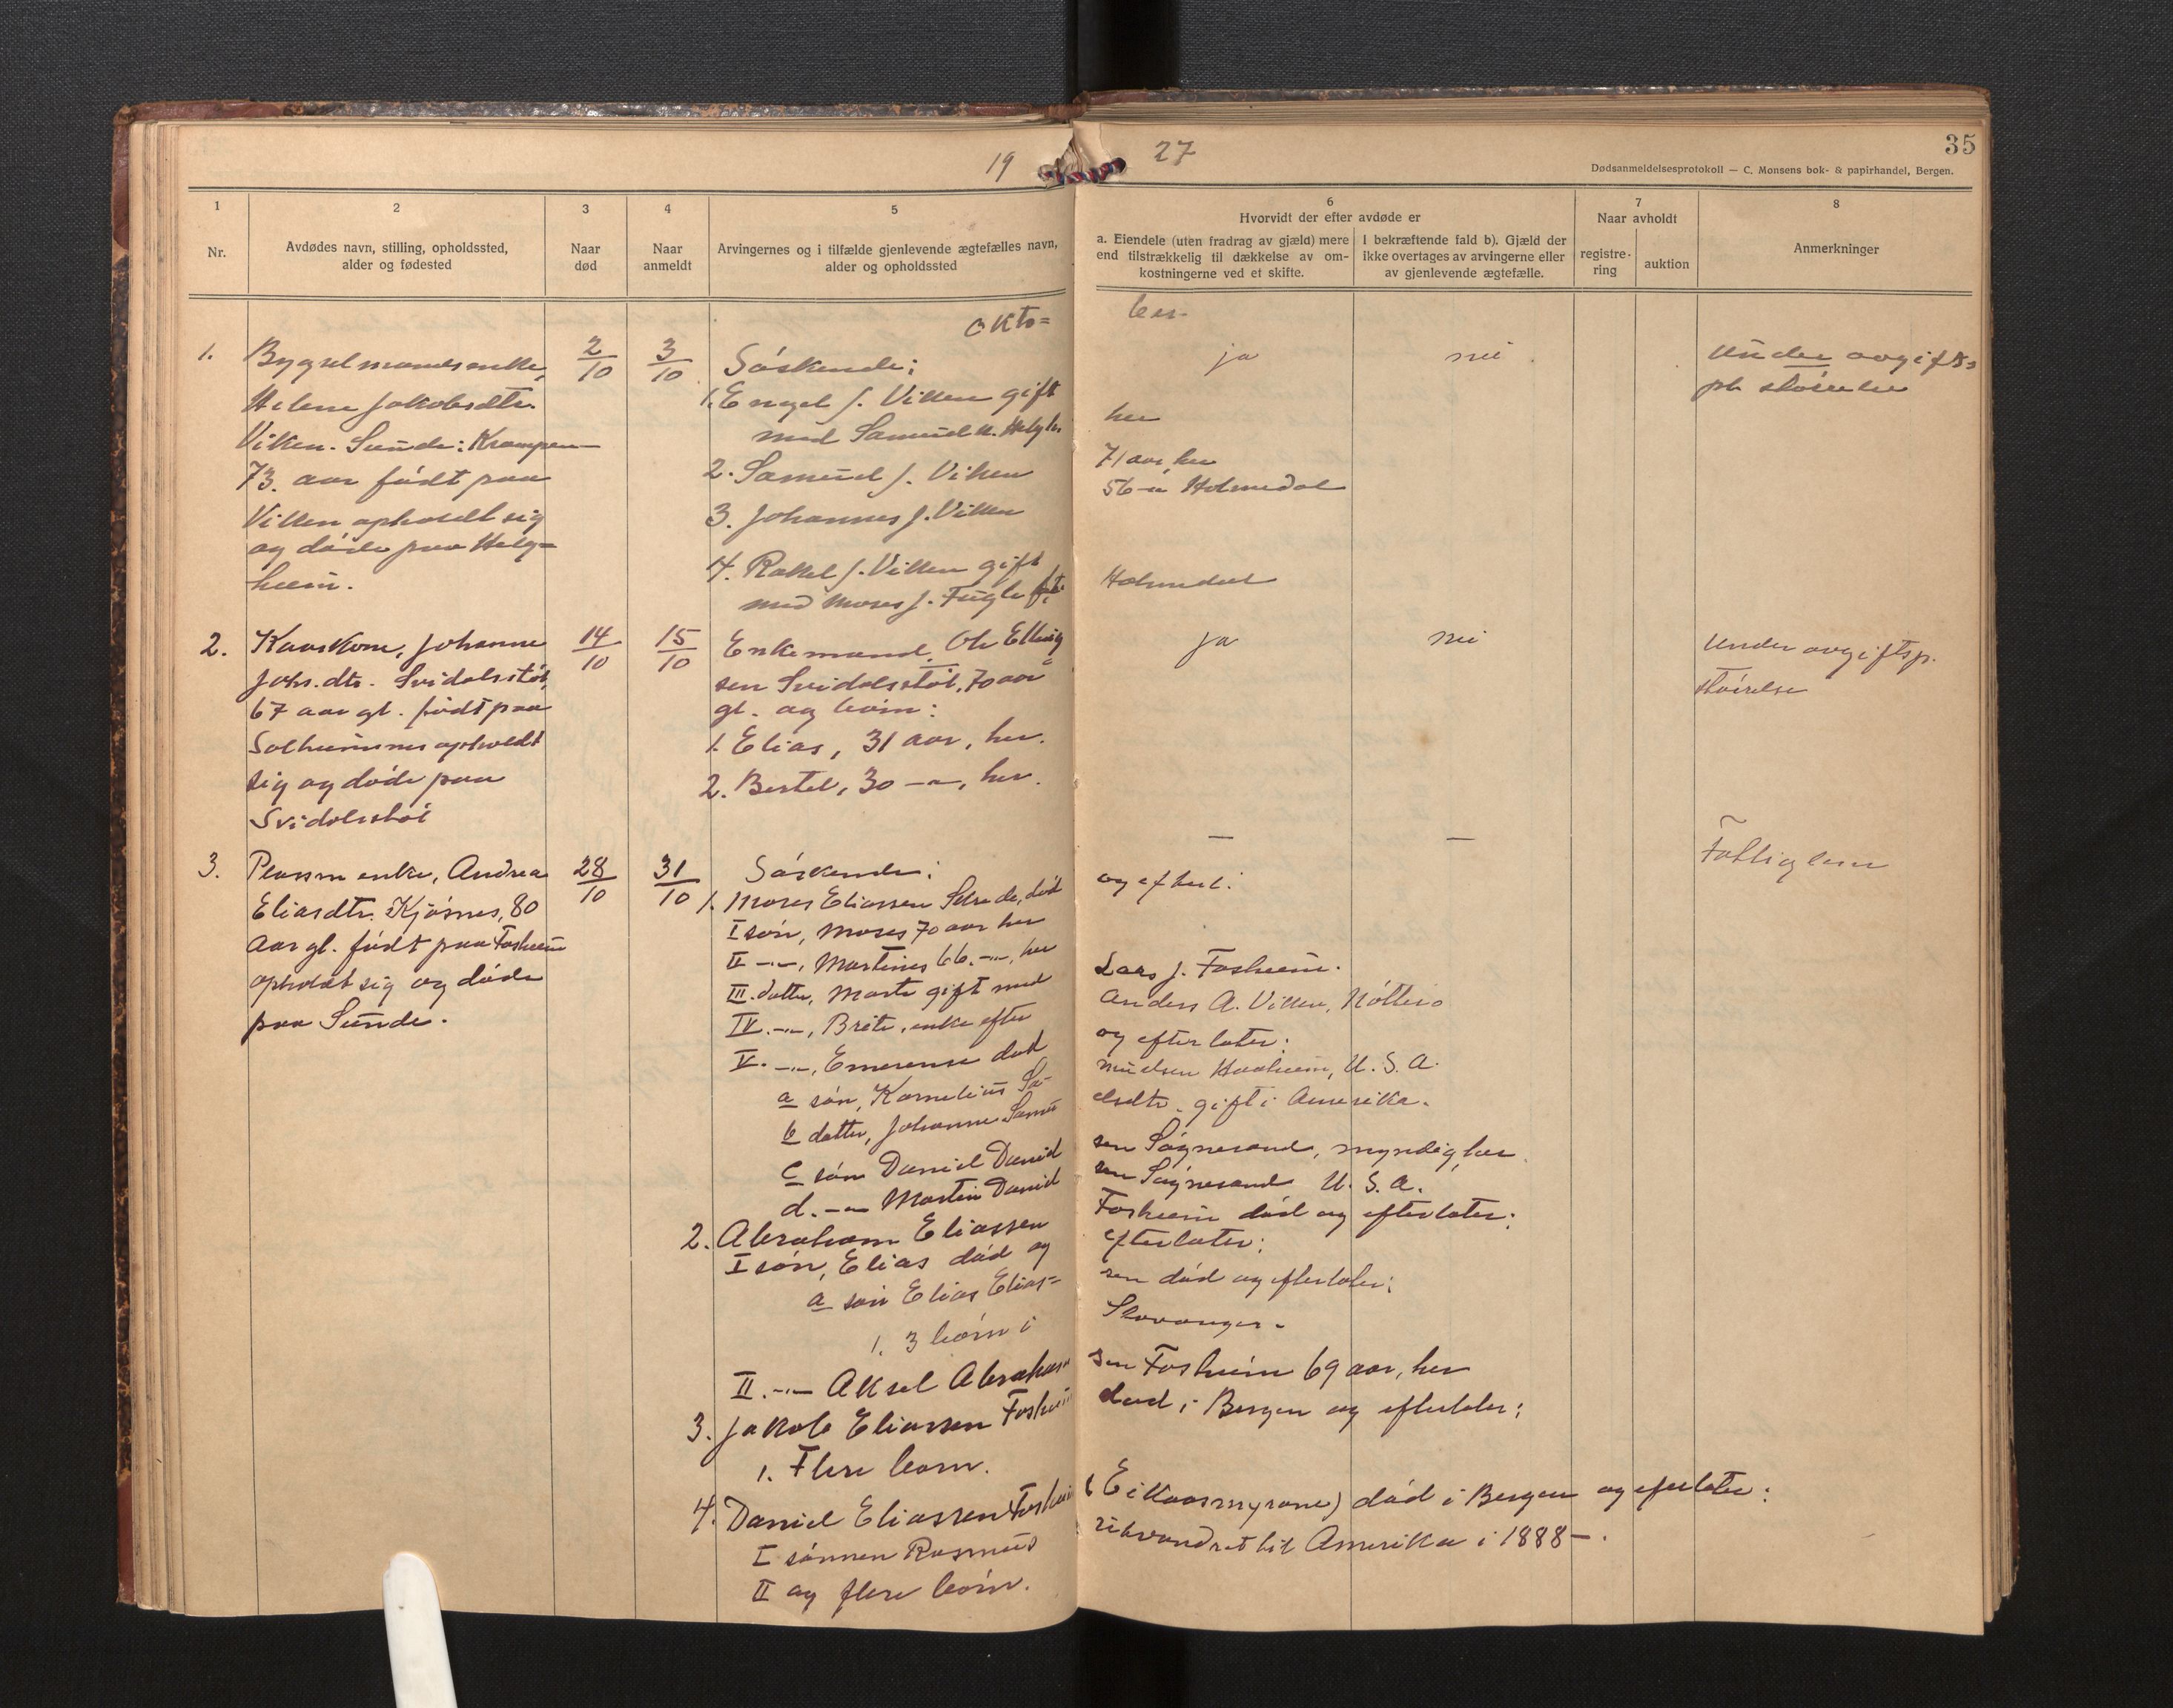 19 27
35
Dødsanmeldelsesprotokoll — C. Monsens bok- & papirhandel, Bergen.
1
Nr.
2
Avdødes navn, stilling, opholdssted,
alder og fødested
3
Naar
død
4
Naar
anmeldt
5
Arvingernes og i tilfælde gjenlevende ægtefælles navn,
alder og opholdssted
6
Hvorvidt der efter avdøde er
a. Eiendele (uten fradrag av gjæld) mere
end tilstrækkelig til dækkelse av om-
kostningerne ved et skifte.
I bekræftende fald b). Gjæld der
ikke overtages av arvingerne eller
av gjenlevende ægtefælle.
7
Naar avholdt
registre-
ring
auktion
8
Anmerkninger
Okto=
ber-
1.
Bygselmandsenke,
Helene Jakobsdtr.
Viken. Sunde: Krampen
73. aar født paa
Viken opholdt sig
og døde paa Helg=
heim.
2/10
3/10
Søskende:
1. Engel J. Viken gift
med Samuel A. Helgh.
her
2. Samuel J. Viken
71 aar, her
3. Johannes J. Viken
56 -"- Holmedal
4. Rakel J. Viken gift
med Moses J. Fugle
Holmedal
ja
nei
Under avgifts=
pl. størrelse
2.
Kaarkone, Johanne
Johs.dtr. Svidalsstøl,
67 aar gl. født paa
Solheimsnes opholdt
sig og døde paa
Svidalsstøl
14/10
15/10
Enkemand Ole Elling
sen Svidalsstøl, 70 aar
gl. og børn:
1. Elias, 31 aar, her.
2. Bertel, 30 -"-, her.
ja
nei
Under avgiftsp.
størrelse
3.
Plassm enke, Andrea
Eliasdtr. Kjøsnes, 80
Aar gl. født paa Fosheim
opholdt sig og døde
paa Sunde.
28/10
31/10
—
—
Fattiglem
Søskende:
1. Moses Eliassen Selsede, død
og efterl:
I søn, Moses 70 aar her
II -"-, Martines 66. -"-, her
III. datter, Marta gift med
Lars J. Fosheim.
IV. -"-, Brite, enke efter
Anders A. Viken, Nøttero
V. -"-, Emerense død
og efterlater:
a søn, Kornelius Sa-
muelsen Haaheim, U. S. A.
b datter, Johanne Samu
elsdtr. gift i Amerika.
c søn Daniel Daniel
sen Søgnesand, myndig, her.
d. -"- Martin Daniel
sen Søgnesand U. S. A.
2. Abraham Eliassen
Fosheim død og efterlater:
I søn, Elias død og
efterlater:
a søn Elias Elias=
sen død og efterlater:
1. 3 børn i
Stavanger.
II. -"- Aksel Abraham
sen Fosheim 69 aar, her
3. Jakob Eliassen Fosheim
død i Bergen og efterlater:
1. Flere børn.
4. Daniel Eliassen Fosheim
(Eikaasmyrane) død i Bergen og efterlater:
I sønnen Rasmus
utvandret til Amerika i 1888 -.
II og flere børn.